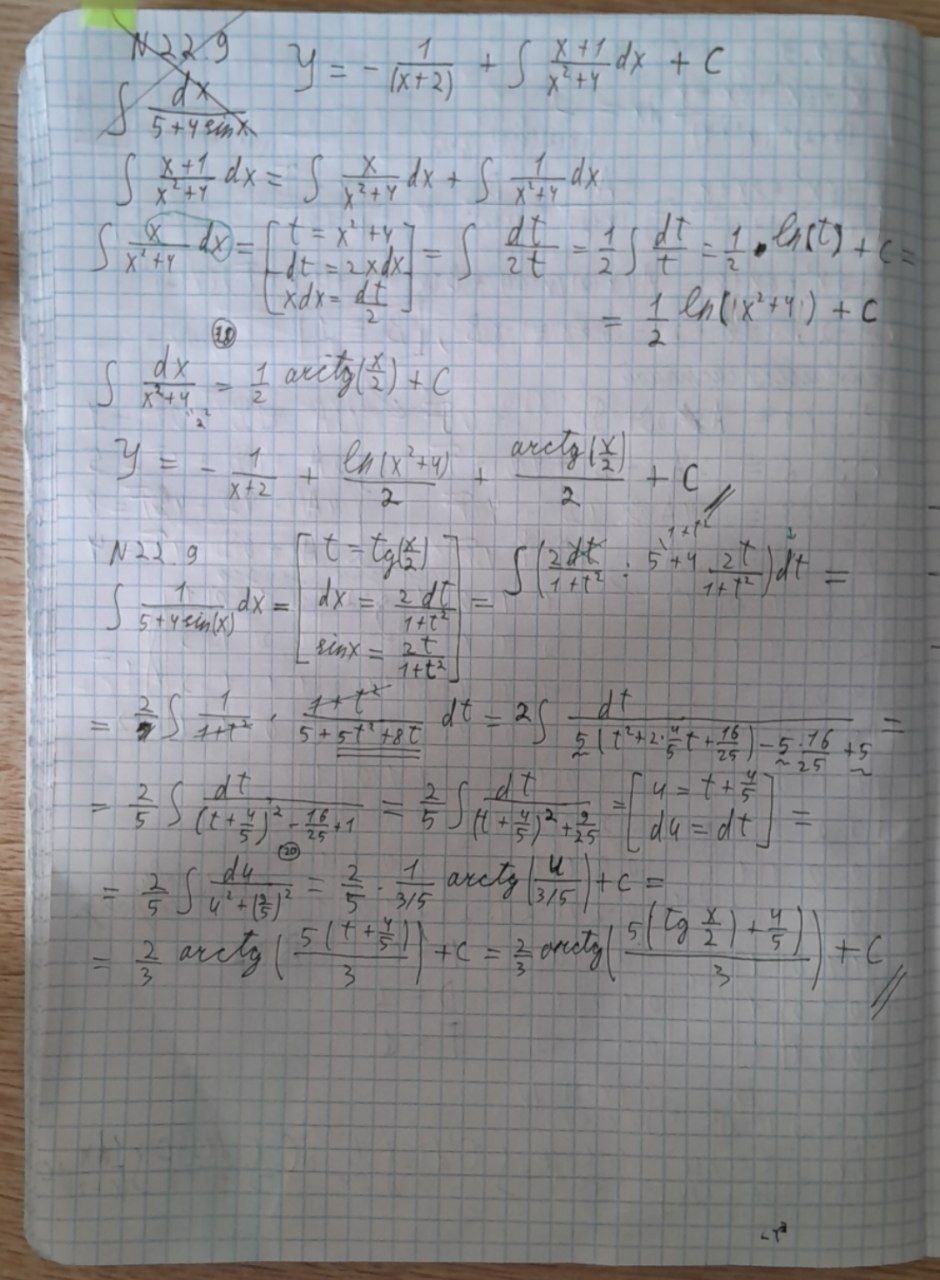 N 22.9
∫ dx/(5+4 sin x)
y = - 1/(x+2) + ∫ (x+1)/(x²+4) dx + C
∫ (x+1)/(x²+4) dx = ∫ x/(x²+4) dx + ∫ 1/(x²+4) dx
∫ x/(x²+4) dx = [t = x²+4; dt = 2x dx; x dx = dt/2] = ∫ dt/(2t) = 1/2 ∫ dt/t = 1/2 · ln(t) + C =
= 1/2 ln(x²+4) + C
∫ dx/(x²+4) = 1/2 arctg(x/2) + C
2²
y = - 1/(x+2) + ln(x²+4)/2 + arctg(x/2)/2 + C //
N 22.9
∫ 1/(5+4 sin(x)) dx = [t = tg(x/2); dx = 2dt/(1+t²); sin x = 2t/(1+t²)] = ∫ (2dt/(1+t²) : 5\1+t² + 4 2t/(1+t²)) dt =
= 2 ∫ 1/(1+t²) · (1+t²)/(5+5t²+8t) dt = 2 ∫ dt/(5(t²+2·4/5 t+16/25) - 5·16/25 + 5) =
= 2/5 ∫ dt/((t+4/5)² - 16/25 + 1) = 2/5 ∫ dt/((t+4/5)² + 9/25) = [u = t + 4/5; du = dt] =
(20)
= 2/5 ∫ du/(u²+(3/5)²) = 2/5 · 1/(3/5) arctg(u/(3/5)) + C =
= 2/3 arctg(5(t+4/5)/3) + C = 2/3 arctg(5(tg x/2 + 4/5)/3) + C //